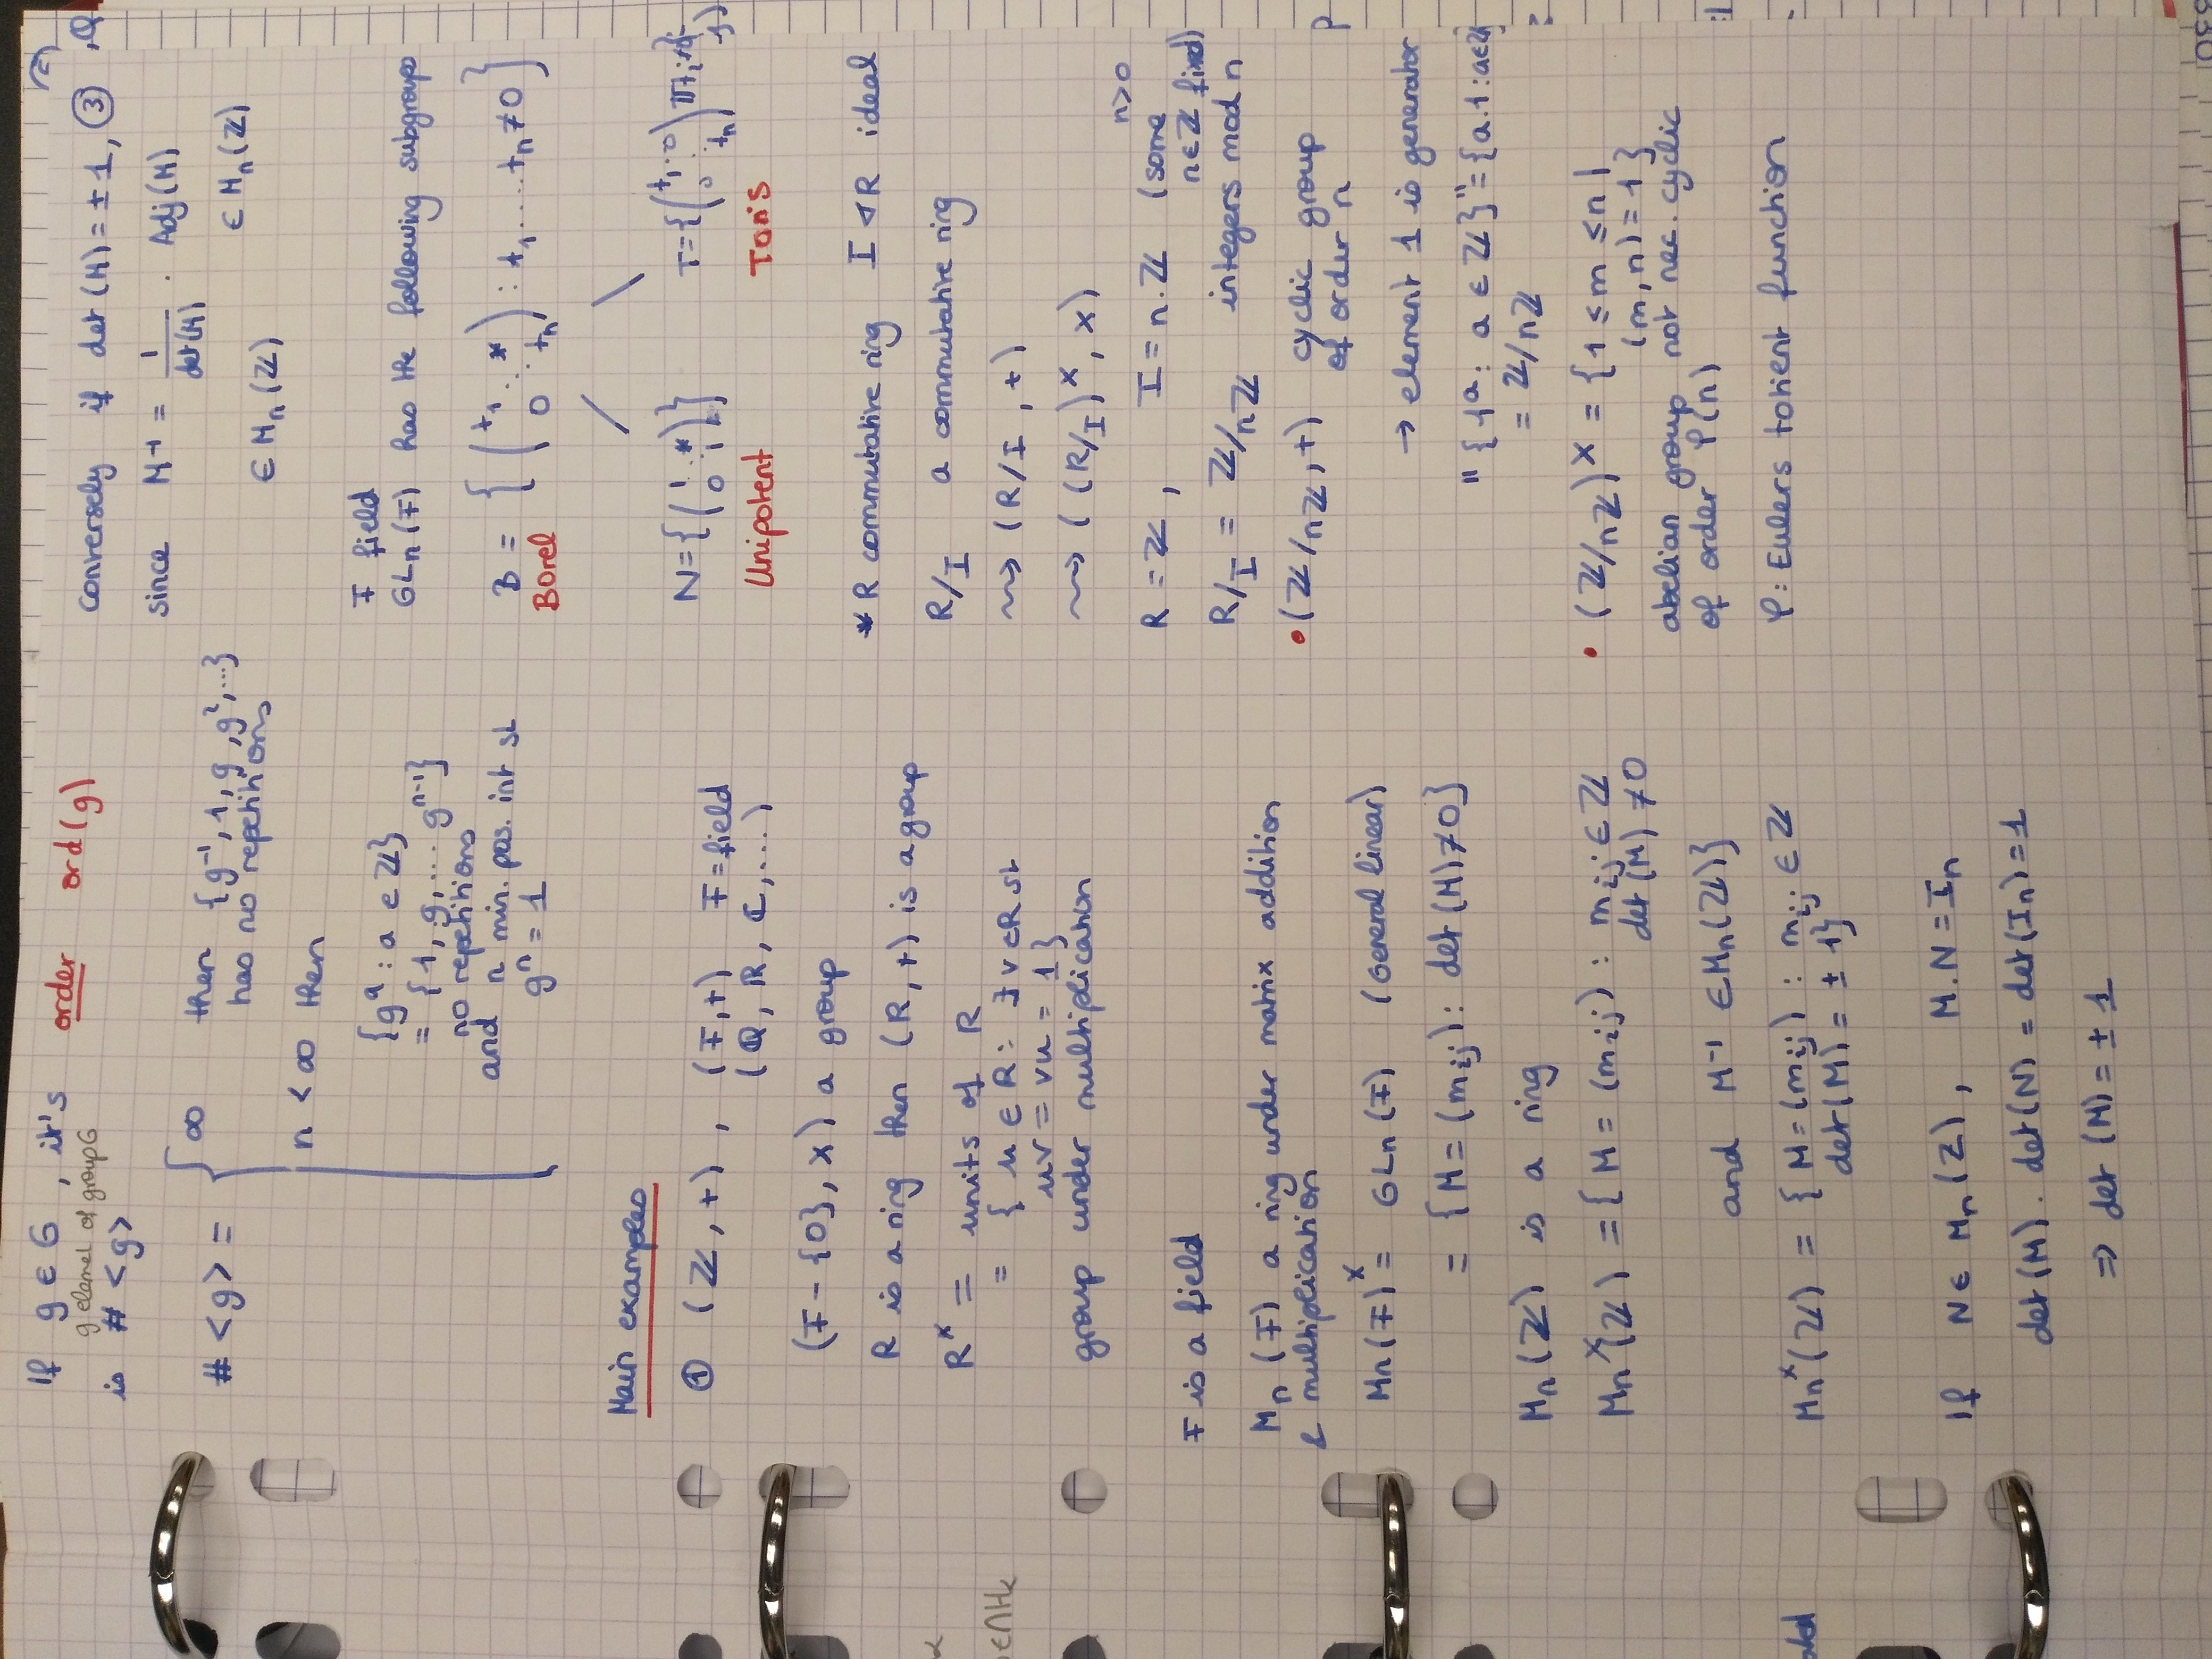 If g ∈ G , it's order ord(g)
g element of group G
is # <g>
# <g> = { ∞ then {g⁻¹, 1, g, g², ...}
has no repetitions
n < ∞ then
{gᵃ : a ∈ ℤ}
= {1, g, .... gⁿ⁻¹}
no repetitions
and n min. pos. int st
gⁿ = 1
Main examples
① (ℤ, +) , (F, +) F = field
(ℚ, ℝ, ℂ, ...)
(F - {0}, ×) a group
R is a ring then (R, +) is a group
Rˣ = units of R
= { u ∈ R : ∃ v ∈ R st
uv = vu = 1 }
group under multiplication
F is a field
Mn (F) a ring under matrix addition
& multiplication
Mn (F)ˣ = GLn (F) (General linear)
= {M = (mij) : det (M) ≠ 0}
Mn (ℤ) is a ring
Mnˣ(ℤ) = { M = (mij) : mij ∈ ℤ
det (M) ≠ 0
and M⁻¹ ∈ Mn (ℤ)}
Mnˣ(ℤ) = { M = (mij) : mij ∈ ℤ
det (M) = ± 1}
If N ∈ Mn (ℤ) , M.N = In
det (M) . det (N) = det (In) = 1
⇒ det (M) = ± 1
conversely if det (M) = ± 1, ③
since M⁻¹ = 1/det(M) . Adj (M)
∈ Mn (ℤ) ∈ Mn (ℤ)
F field
GLn (F) has the following subgroups
B = { (t1 .. * 0 tn) : t1, .... tn ≠ 0 }
Borel
N = {(1 .. * 0 1)} T = {(t1 .. 0 0 .. tn)
Unipotent Torus
* R commutative ring I ◁ R ideal
R/I a commutative ring
⇝ (R/I, +)
⇝ ((R/I)ˣ, ×)
n>0
R = ℤ , I = n.ℤ (some
n ∈ ℤ fixed)
R/I = ℤ/nℤ integers mod n
• (ℤ/nℤ, +) cyclic group
of order n
→ element 1 is generator
"{1ᵃ : a ∈ ℤ}" = {a.1 : a ∈ ℤ}
= ℤ/nℤ
• (ℤ/nℤ)ˣ = {1 ≤ m ≤ n |
(m, n) = 1}
abelian group not nec. cyclic
of order φ(n)
φ : Eulers totient function